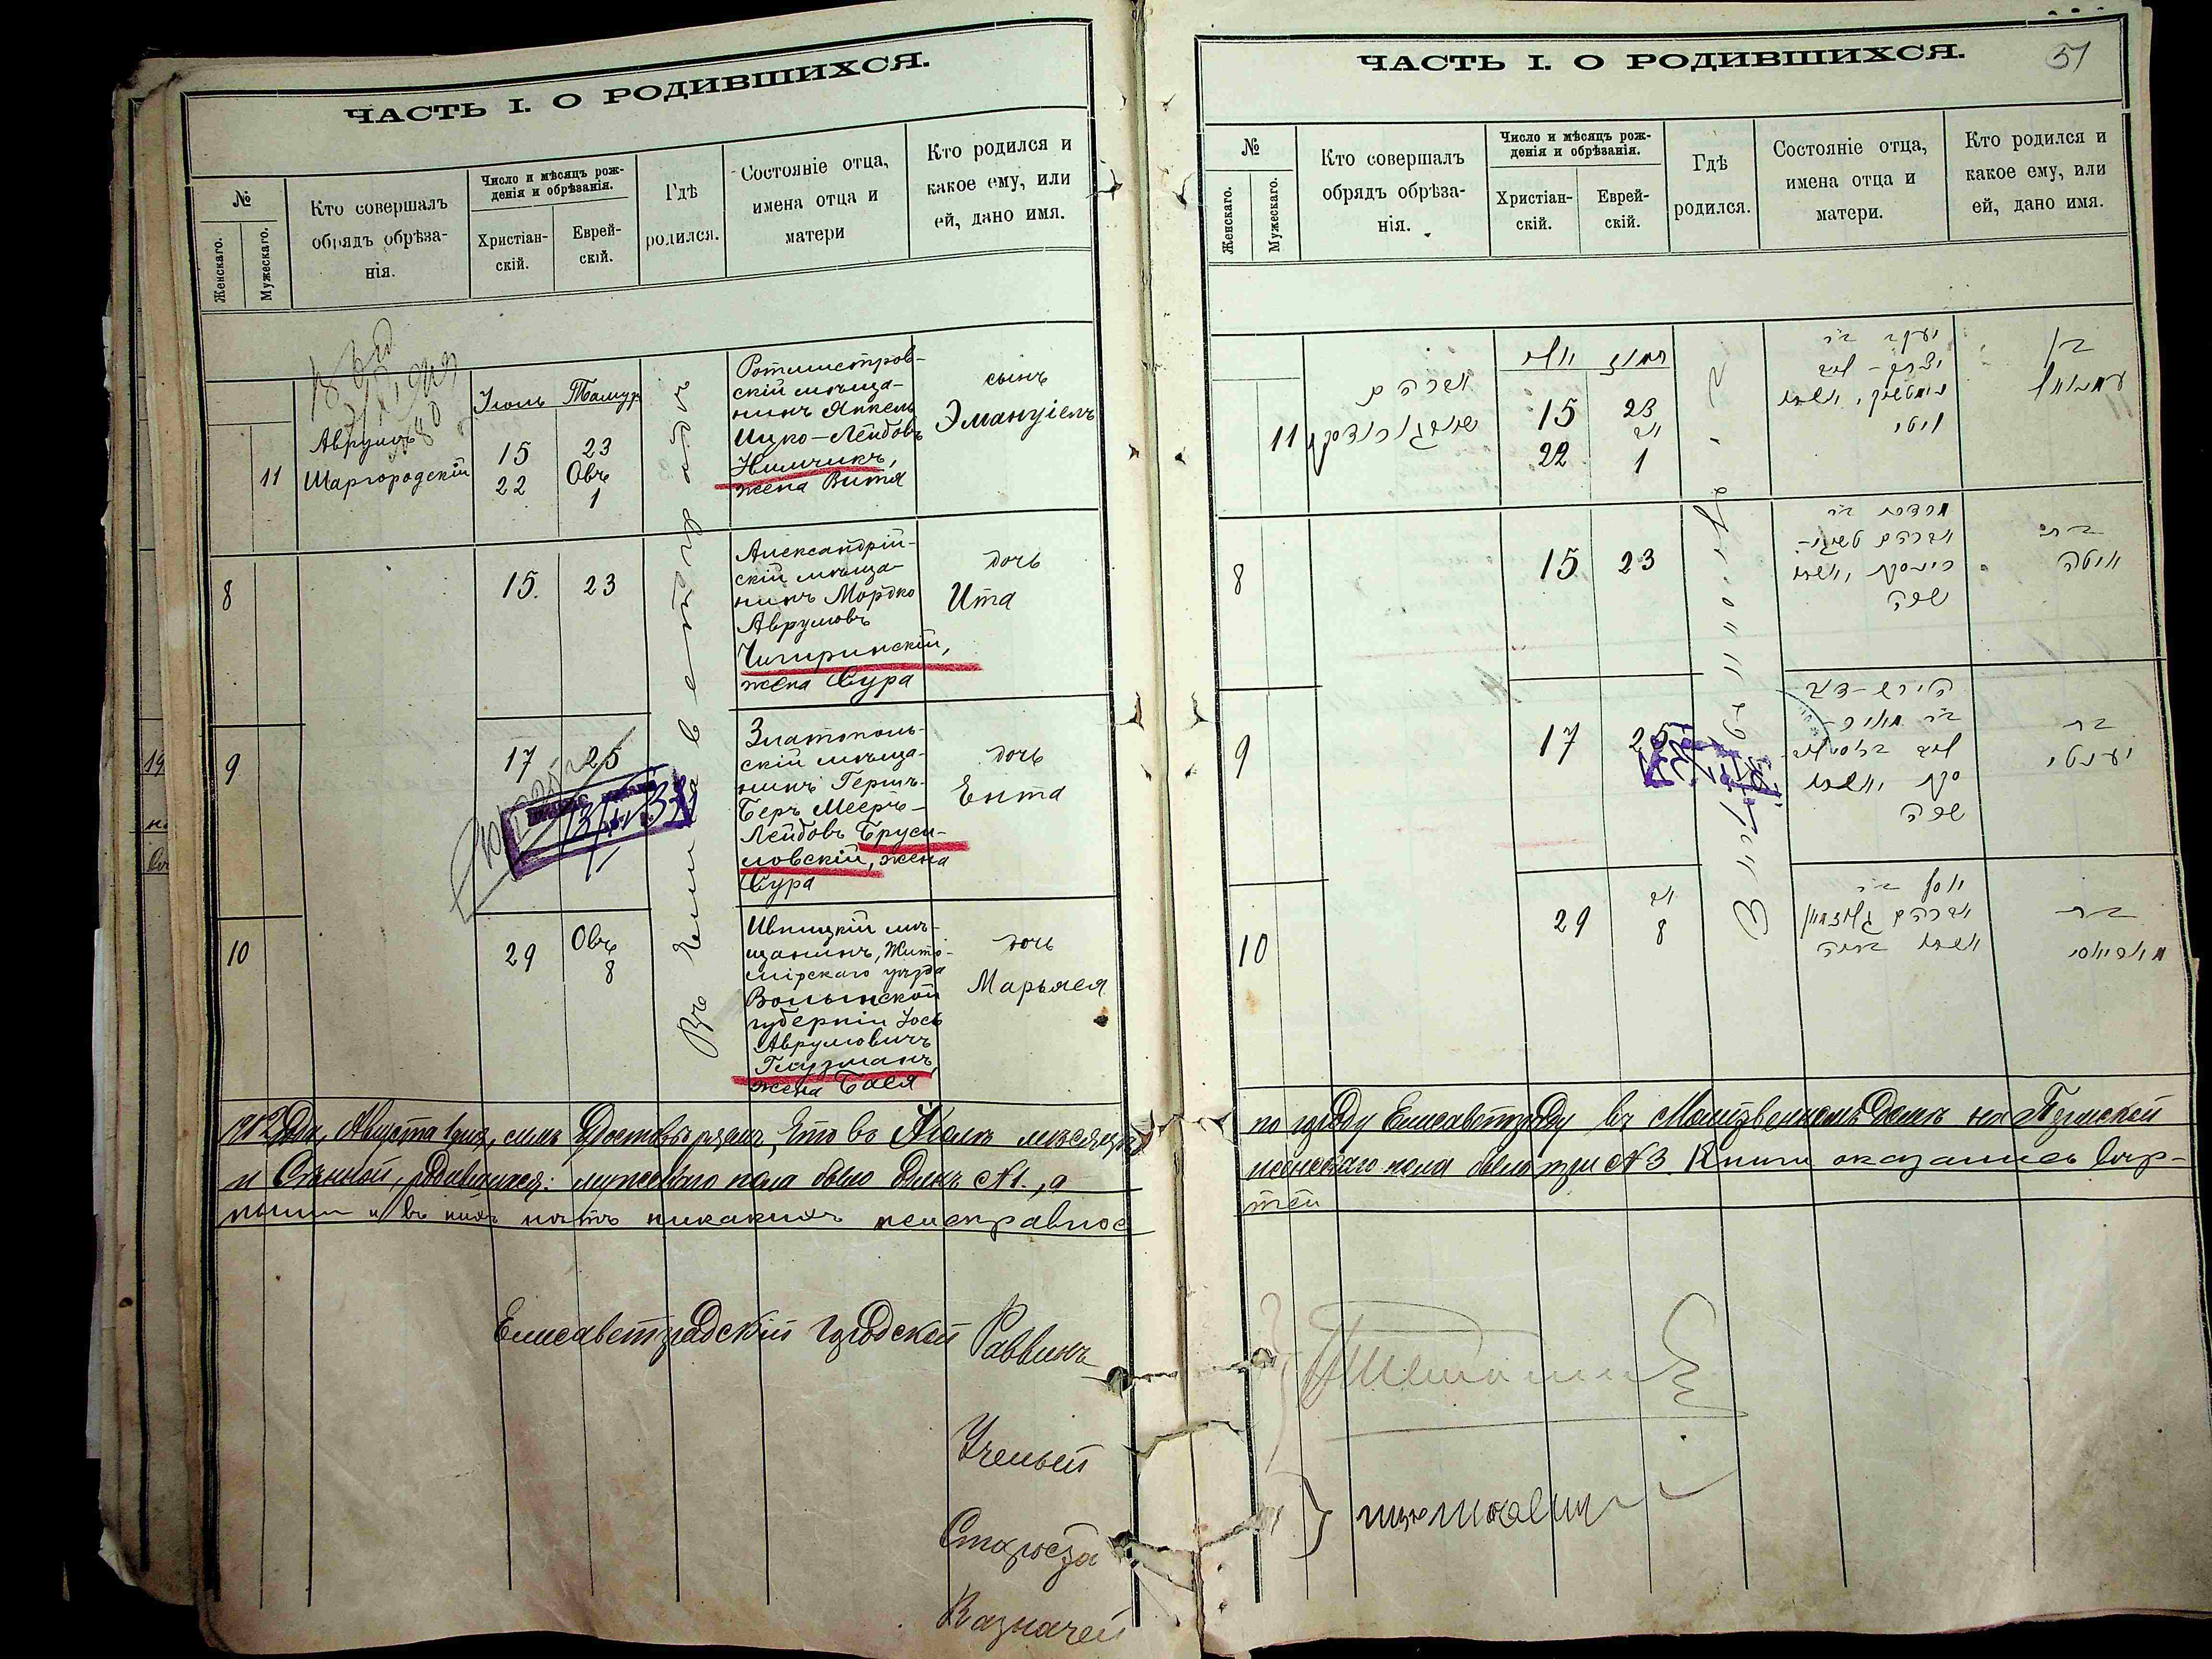 ЧАСТЬ I. О РОДИВШИХСЯ.
№
Женскаго.
Мужескаго.
Кто совершалъ
обрядъ обрѣза-
нія.
Число и мѣсяцъ рож-
денія и обрѣзанія.
Христіан-
скій.
Еврей-
скій.
Гдѣ
родился.
Состояніе отца,
имена отца и
матери
Кто родился и
какое ему, или
ей, дано имя.
11
Аврумъ
Шаргородскій
Іюль
15
22
Тамуз
23
Овъ
1
Въ Елисаветградѣ
Ротмистров-
скій мѣща-
нинъ Янкель
Ицко-Лейбовъ
Нимчикъ,
жена Витя
сынъ
Эмануіелъ
8
15.
23
Александрій-
скій мѣща-
нинъ Мордко
Аврумовъ
Чигиринскій,
жена Сура
дочь
Ита
9
17
25
Златополь-
скій мѣща-
нинъ Гершъ-
Беръ Мееръ-
Лейбовъ Бруси-
ловскій, жена
Сура
дочь
Ента
10
29
Овъ
8
Ивницкій мѣ-
щанинъ, Жито-
мірскаго уѣзда
Волынской
губерніи Іось
Аврумовичъ
Глузманъ,
жена Бася
дочь
Марьяся
1912 года, Августа 1 дня, симъ удостовѣряемъ, что въ Іюлѣ мѣсяцѣ
и Сѣнной, родившихся: мужескаго пола было одинъ №1., а
ными и въ нихъ нѣтъ никакихъ неисправнос
Елисаветградскій городской Раввинъ
Ученый
Староста
Казначей
ЧАСТЬ I. О РОДИВШИХСЯ.
51
№
Женскаго.
Мужескаго.
Кто совершалъ
обрядъ обрѣза-
нія.
Число и мѣсяцъ рож-
денія и обрѣзанія.
Христіан-
скій.
Еврей-
скій.
Гдѣ
родился.
Состояніе отца,
имена отца и
матери.
Кто родился и
какое ему, или
ей, дано имя.
11
אברהם
שארגאראדסקי
יולי
15
22
תמוז
23
אב
1
יעקב בר
בן
עמנואל
8
15
23
מרדכי בר
אברהם
ואשתו
שרה
בת
איטה
9
17
25
הירש-דב
בר מאיר-
ליב
ואשתו
שרה
בת
יענטי
10
29
אב
8
יוסף בר
אברהם גלוזמאן
ואשתו באסיה
בת
по городу Елисаветграду въ Молитвенномъ домѣ на Пермской
женскаго пола было три №3. Книги оказались вѣр-
тей